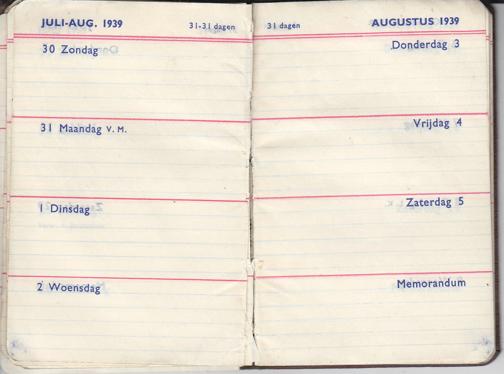 JULI-AUG. 1939 31-31 dagen
30 Zondag
31 Maandag V. M.
1 Dinsdag
2 Woensdag
31 dagen AUGUSTUS 1939
Donderdag 3
Vrijdag 4
Zaterdag 5
Memorandum